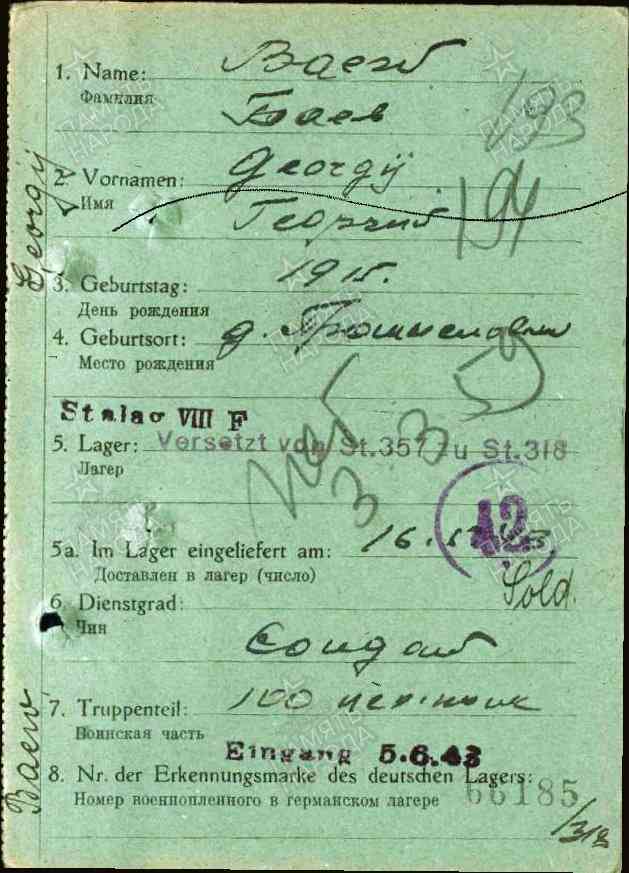 1. Name: Baew
Фамилия Баев
193
2. Vornamen: Georgij
Имя Георгий
194
3. Geburtstag: 1915.
День рождения
4. Geburtsort: д.
Место рождения
Stalag VIII F
5. Lager: Versetzt von St.357 zu St.318
Лагерь
42
5a. Im Lager eingeliefert am: 16.
Доставлен в лагерь (число)
Sold.
6. Dienstgrad:
Чин
Солдат
7. Truppenteil: 100
Воинская часть
Eingang 5.6.43
8. Nr. der Erkennungsmarke des deutschen Lagers:
Номер военнопленного в германском лагере 66185
/318
Georgij
Baew
ПАМЯТЬ НАРОДА